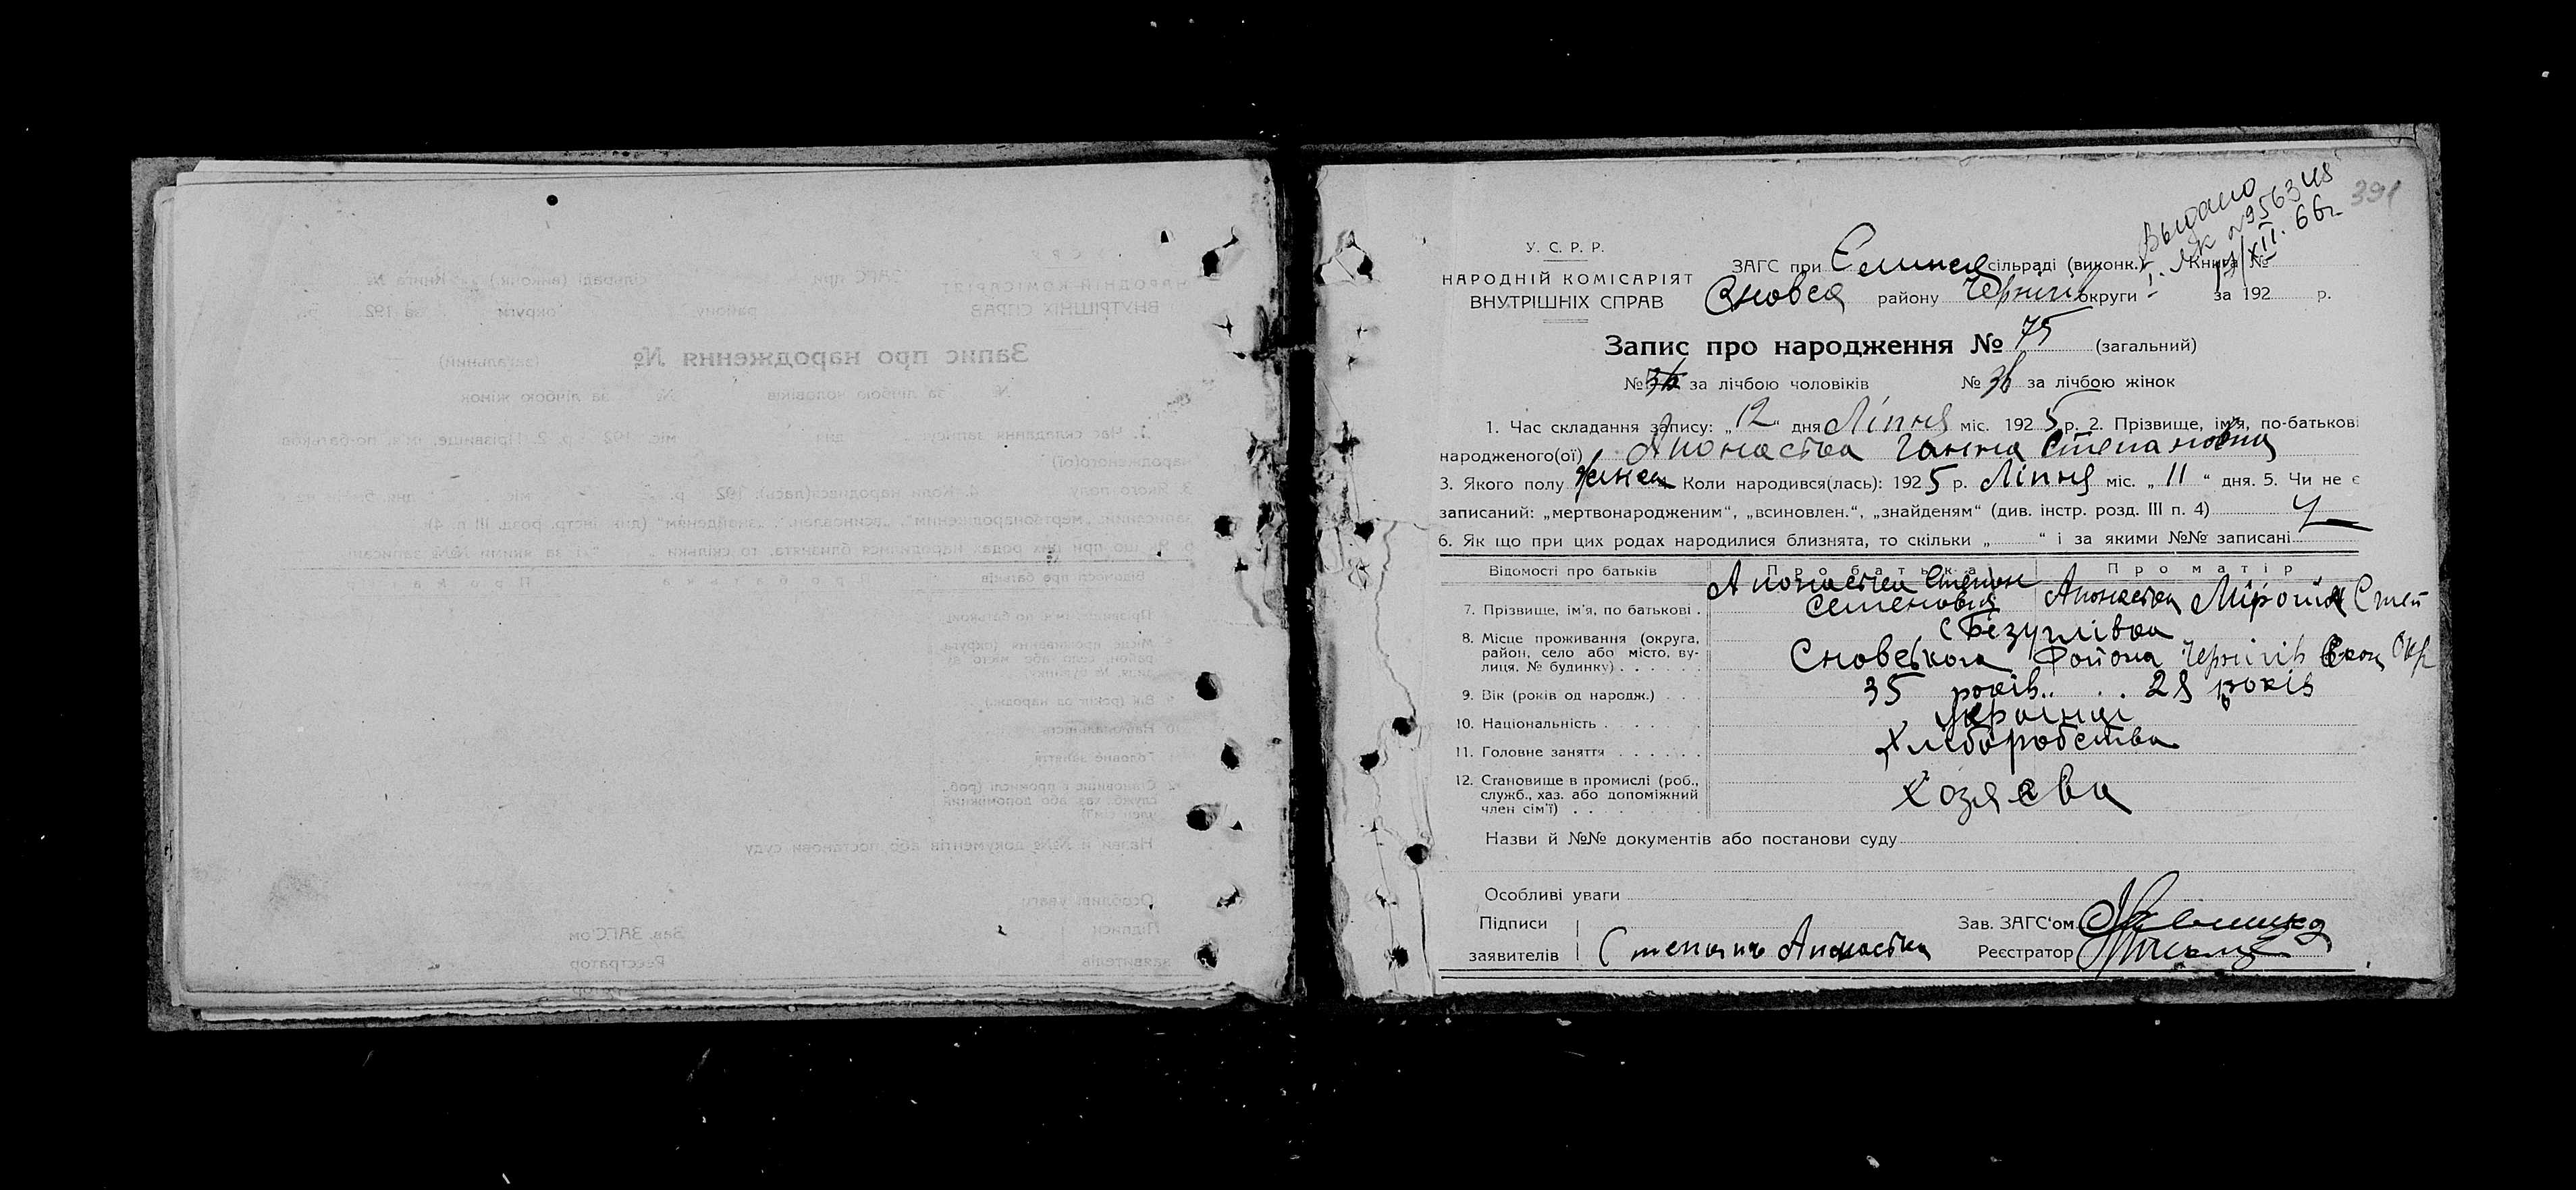 391
Выдано
У. С. Р. Р.
НАРОДНІЙ КОМІСАРІЯТ
ВНУТРІШНІХ СПРАВ
ЗАГС при сільраді (виконк.) Книга №
району Черниг округи за 192 р.
Запис про народження № 75 (загальний)
№ за лічбою чоловіків № 36 за лічбою жінок
1. Час складання запису: „12“ дня Ліпня міс. 1925 р. 2. Прізвище, ім'я, по-батькові
народженого(ої) Апонаська Ганна Степановна
3. Якого полу Коли народився(лась): 1925 р. Ліпня міс. „11“ дня. 5. Чи не є
записаний: „мертвонародженим“, „всиновлен.“, „знайденям“ (див. інстр. розд. III п. 4)
6. Як що при цих родах народилися близнята, то скільки „ “ і за якими №№ записані
Відомості про батьків Про батька Про матір
7. Прізвище, ім'я, по батькові . Апонаська Степан Семенович Апонаська Степ
8. Місце проживання (округа, район, село або місто, вулиця. № будинку) . . . с Безуглівка
Сновського Района Черниг Окр
9. Вік (років од народж.) . . 35 років. . . 28 років
10. Національність . . . . . Украінці
11. Головне заняття . . . . . Хліборобства
12. Становище в промислі (роб., служб., хаз. або допоміжний член сім'ї) . . . . . Хозяева
Назви й №№ документів або постанови суду
Особливі уваги
Підписи
заявителів Степанъ Апанаська
Зав. ЗАГС'ом
Реєстратор